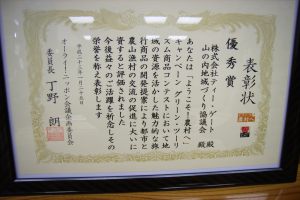 表彰状
優秀賞
株式会社ティー・ゲート 殿
山の内地域づくり協議会 殿
あなたは「ようこそ！農村へ」
キャンペーン グリーン・ツーリ
ズム商品コンテストにおいて地
域の資源を活かした魅力的な旅
行商品の開発提案により都市と
農山漁村の交流の促進に大いに
資すると評価されました
今後益々のご活躍を祈念しその
栄誉を称えて表彰します
平成二十三年一月二十九日
オーライ！ニッポン会議企画委員会
委員長 丁野 朗